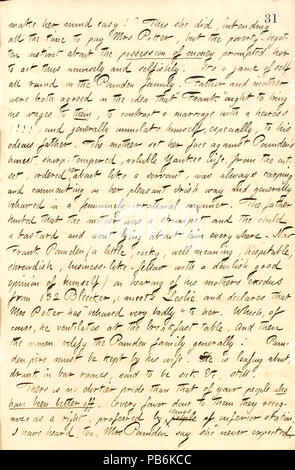 31
make her mind easy!" This she did, intending
all the time to pay Mrs Potter, but the poverty-begot-
ten instinct about the possession of money prompted her
to act thus unwisely and selfishly. It's a game of self
all round in the Pounden family. Father and mother
were both agreed in the idea that Frank ought to bring
his wages to them, to contract a marriage with a heiress
!!!!, and generally immolate himself, especially to his
odious father. The mother set her face against Pounden's
honest sharp-tempered, voluble Yankee wife, from the out-
set, ordered about like a servant, was always carping
and commenting in her pleasant Irish way and generally
behaved in a femininely-infernal manner. The father
hinted that the mother was a strumpet and the child
a bastard and went lying about him everywhere. Now
Frank Pounden (a little, cocky, well meaning, hospitable,
shrewdish, business-like fellow with a devilish good
opinion of himself) on hearing of his mother's exodus
from 132 Bleecker, meets Leslie and declares that
Mrs Potter has behaved very badly to her. Which, of
course, he ventilates at the breakfast table. And then
the women vilify the Pounden family generally: Poun-
den père must be kept by his wife. He is loafing about,
drunk in bar rooms, said to be sick &c, still.
There is no dirtier pride than that of your people who
have been better off. Every favor done to them they recog-
nize as a "right", proffered by beings of inferior station.
I have heard, too, Mrs Pounden say she "never expected
alamy
PB6KCC